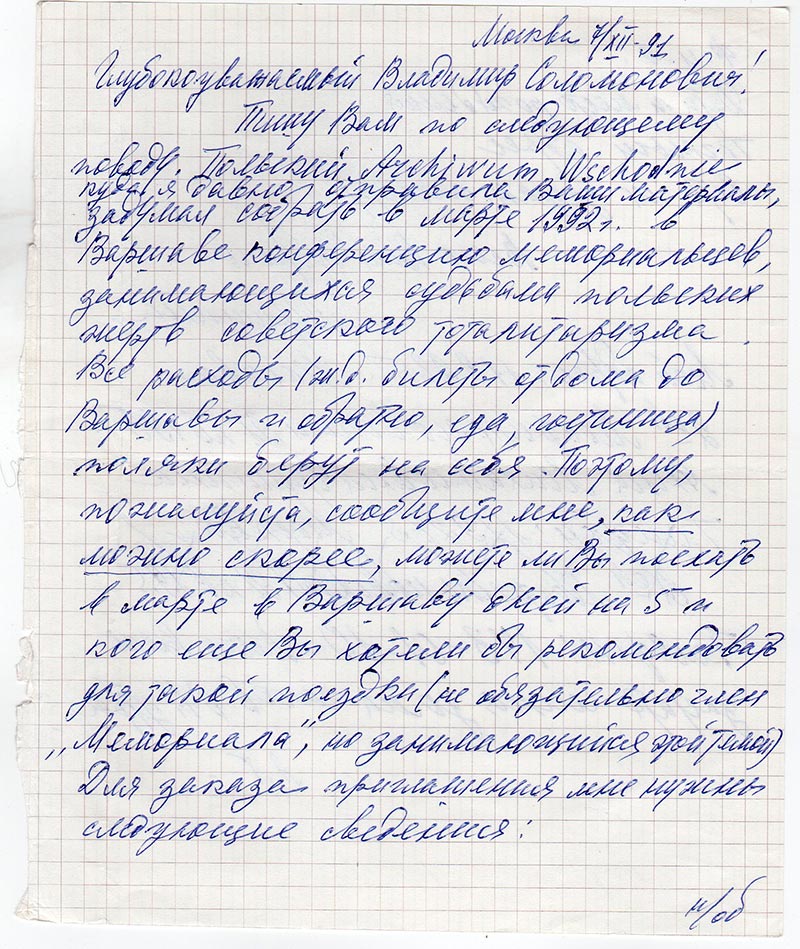 Москва 7/XII-91
Глубокоуважаемый Владимир Соломонович!
Пишу Вам по следующему
поводу. Польский Archiwum Wschodnie
куда я давно отправила Ваши материалы,
задумал собрать в марте 1992 г. в
Варшаве конференцию мемориальцев,
занимающихся судьбами польских
жертв советского тоталитаризма.
Все расходы (ж.д. билеты от дома до
Варшавы и обратно, еда, гостиница)
поляки берут на себя. Поэтому,
пожалуйста, сообщите мне, как
можно скорее, можете ли Вы поехать
в марте в Варшаву дней на 5 и
кого еще Вы хотели бы рекомендовать
для такой поездки (не обязательно член
„Мемориала", но занимающийся этой темой)
Для заказа приглашения мне нужны
следующие сведения:
н/об